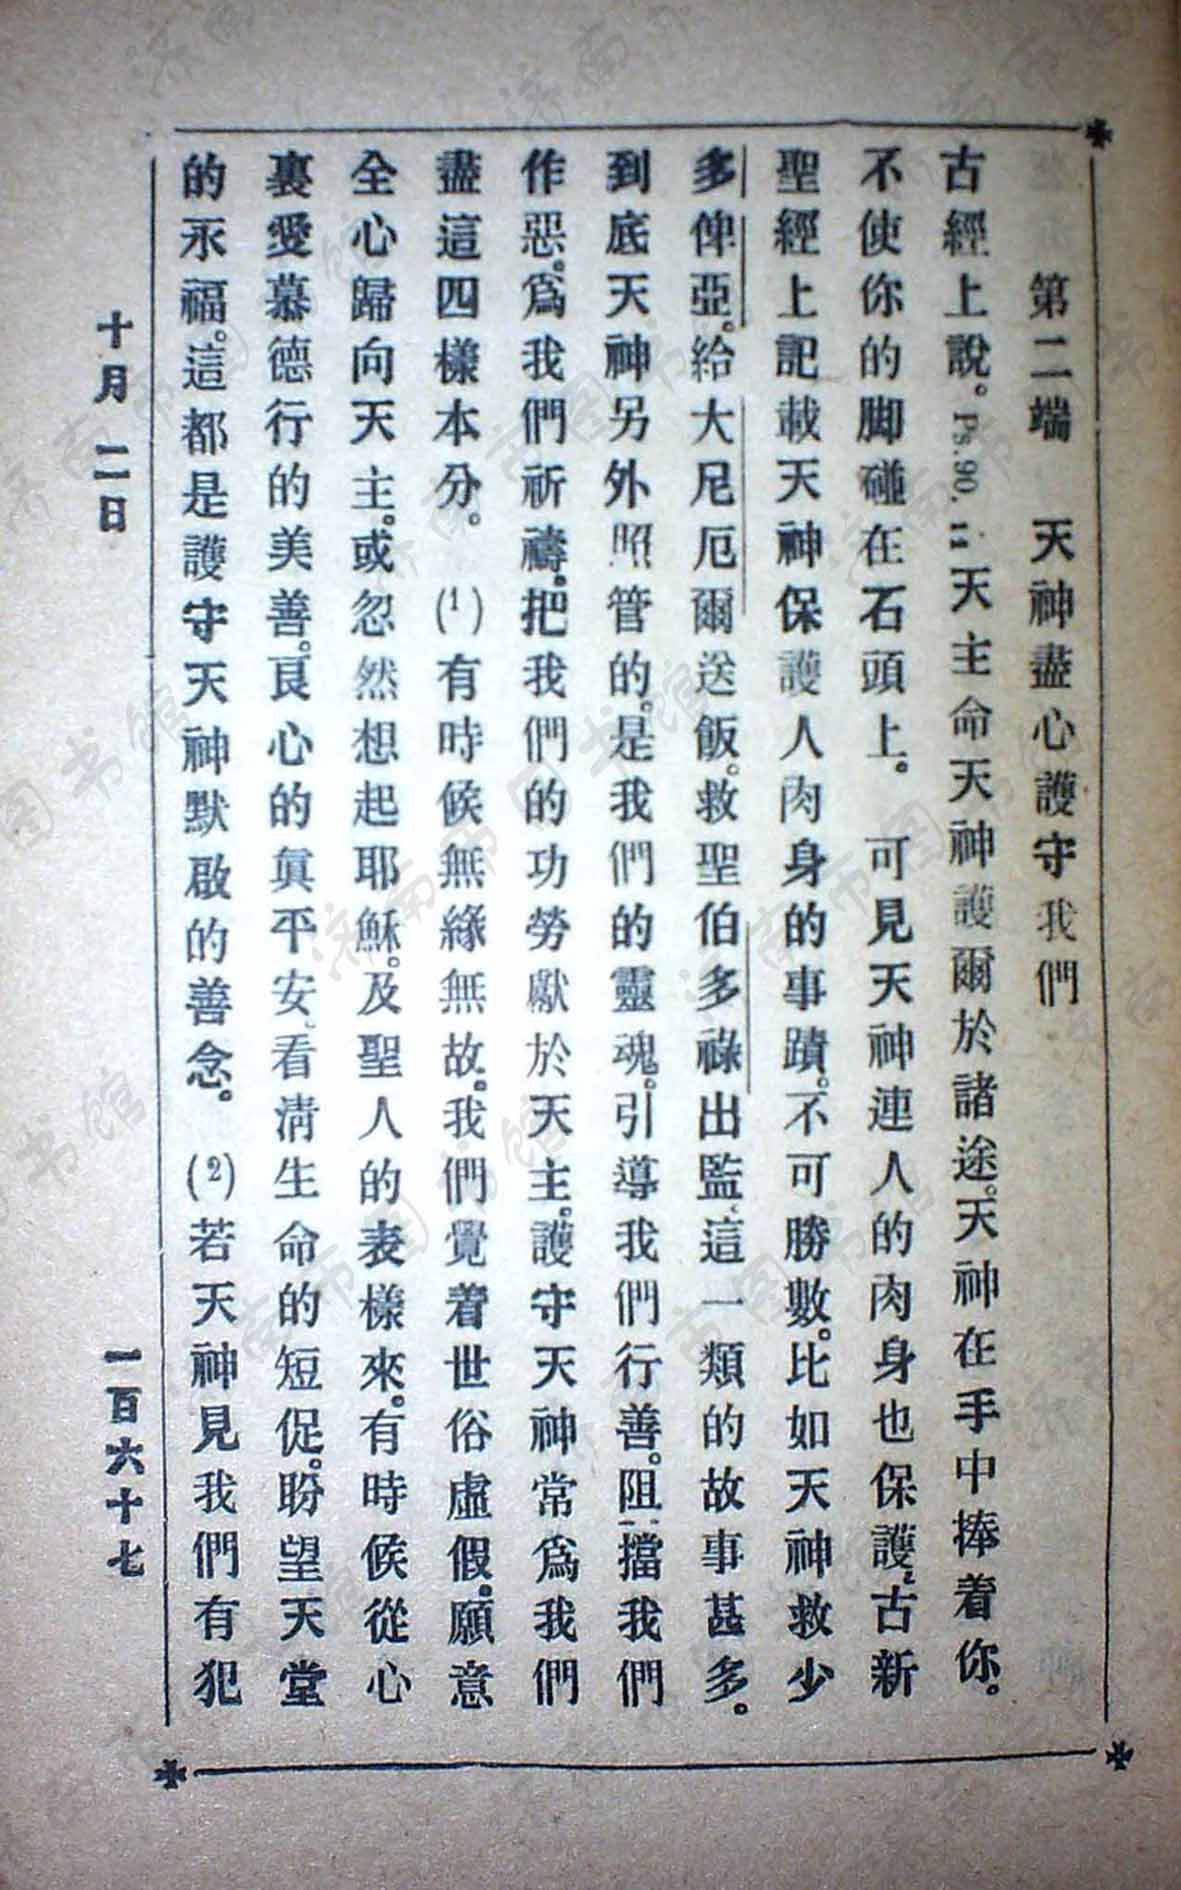 第二端　天神盡心護守我們
古經上說。Ps. 90. 11 天主命天神護爾於諸途。天神在手中捧着你。
不使你的脚碰在石頭上。　可見天神連人的肉身也保護、古新
聖經上記載天神保護人肉身的事蹟。不可勝數。比如天神救少
多俾亞。給大尼厄爾送飯。救聖伯多祿出監、這一類的故事甚多。
到底天神另外照管的。是我們的靈魂。引導我們行善。阻擋我們
作惡。爲我們祈禱。把我們的功勞獻於天主。護守天神常爲我們
盡這四樣本分。(1)有時候無緣無故。我們覺着世俗虛假。願意
全心歸向天主。或忽然想起耶穌。及聖人的表樣來。有時候從心
裏愛慕德行的美善。良心的眞平安、看淸生命的短促。盼望天堂
的永福。這都是護守天神默啟的善念。(2)若天神見我們有犯
十月二日　一百六十七